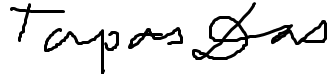 Tapas Das